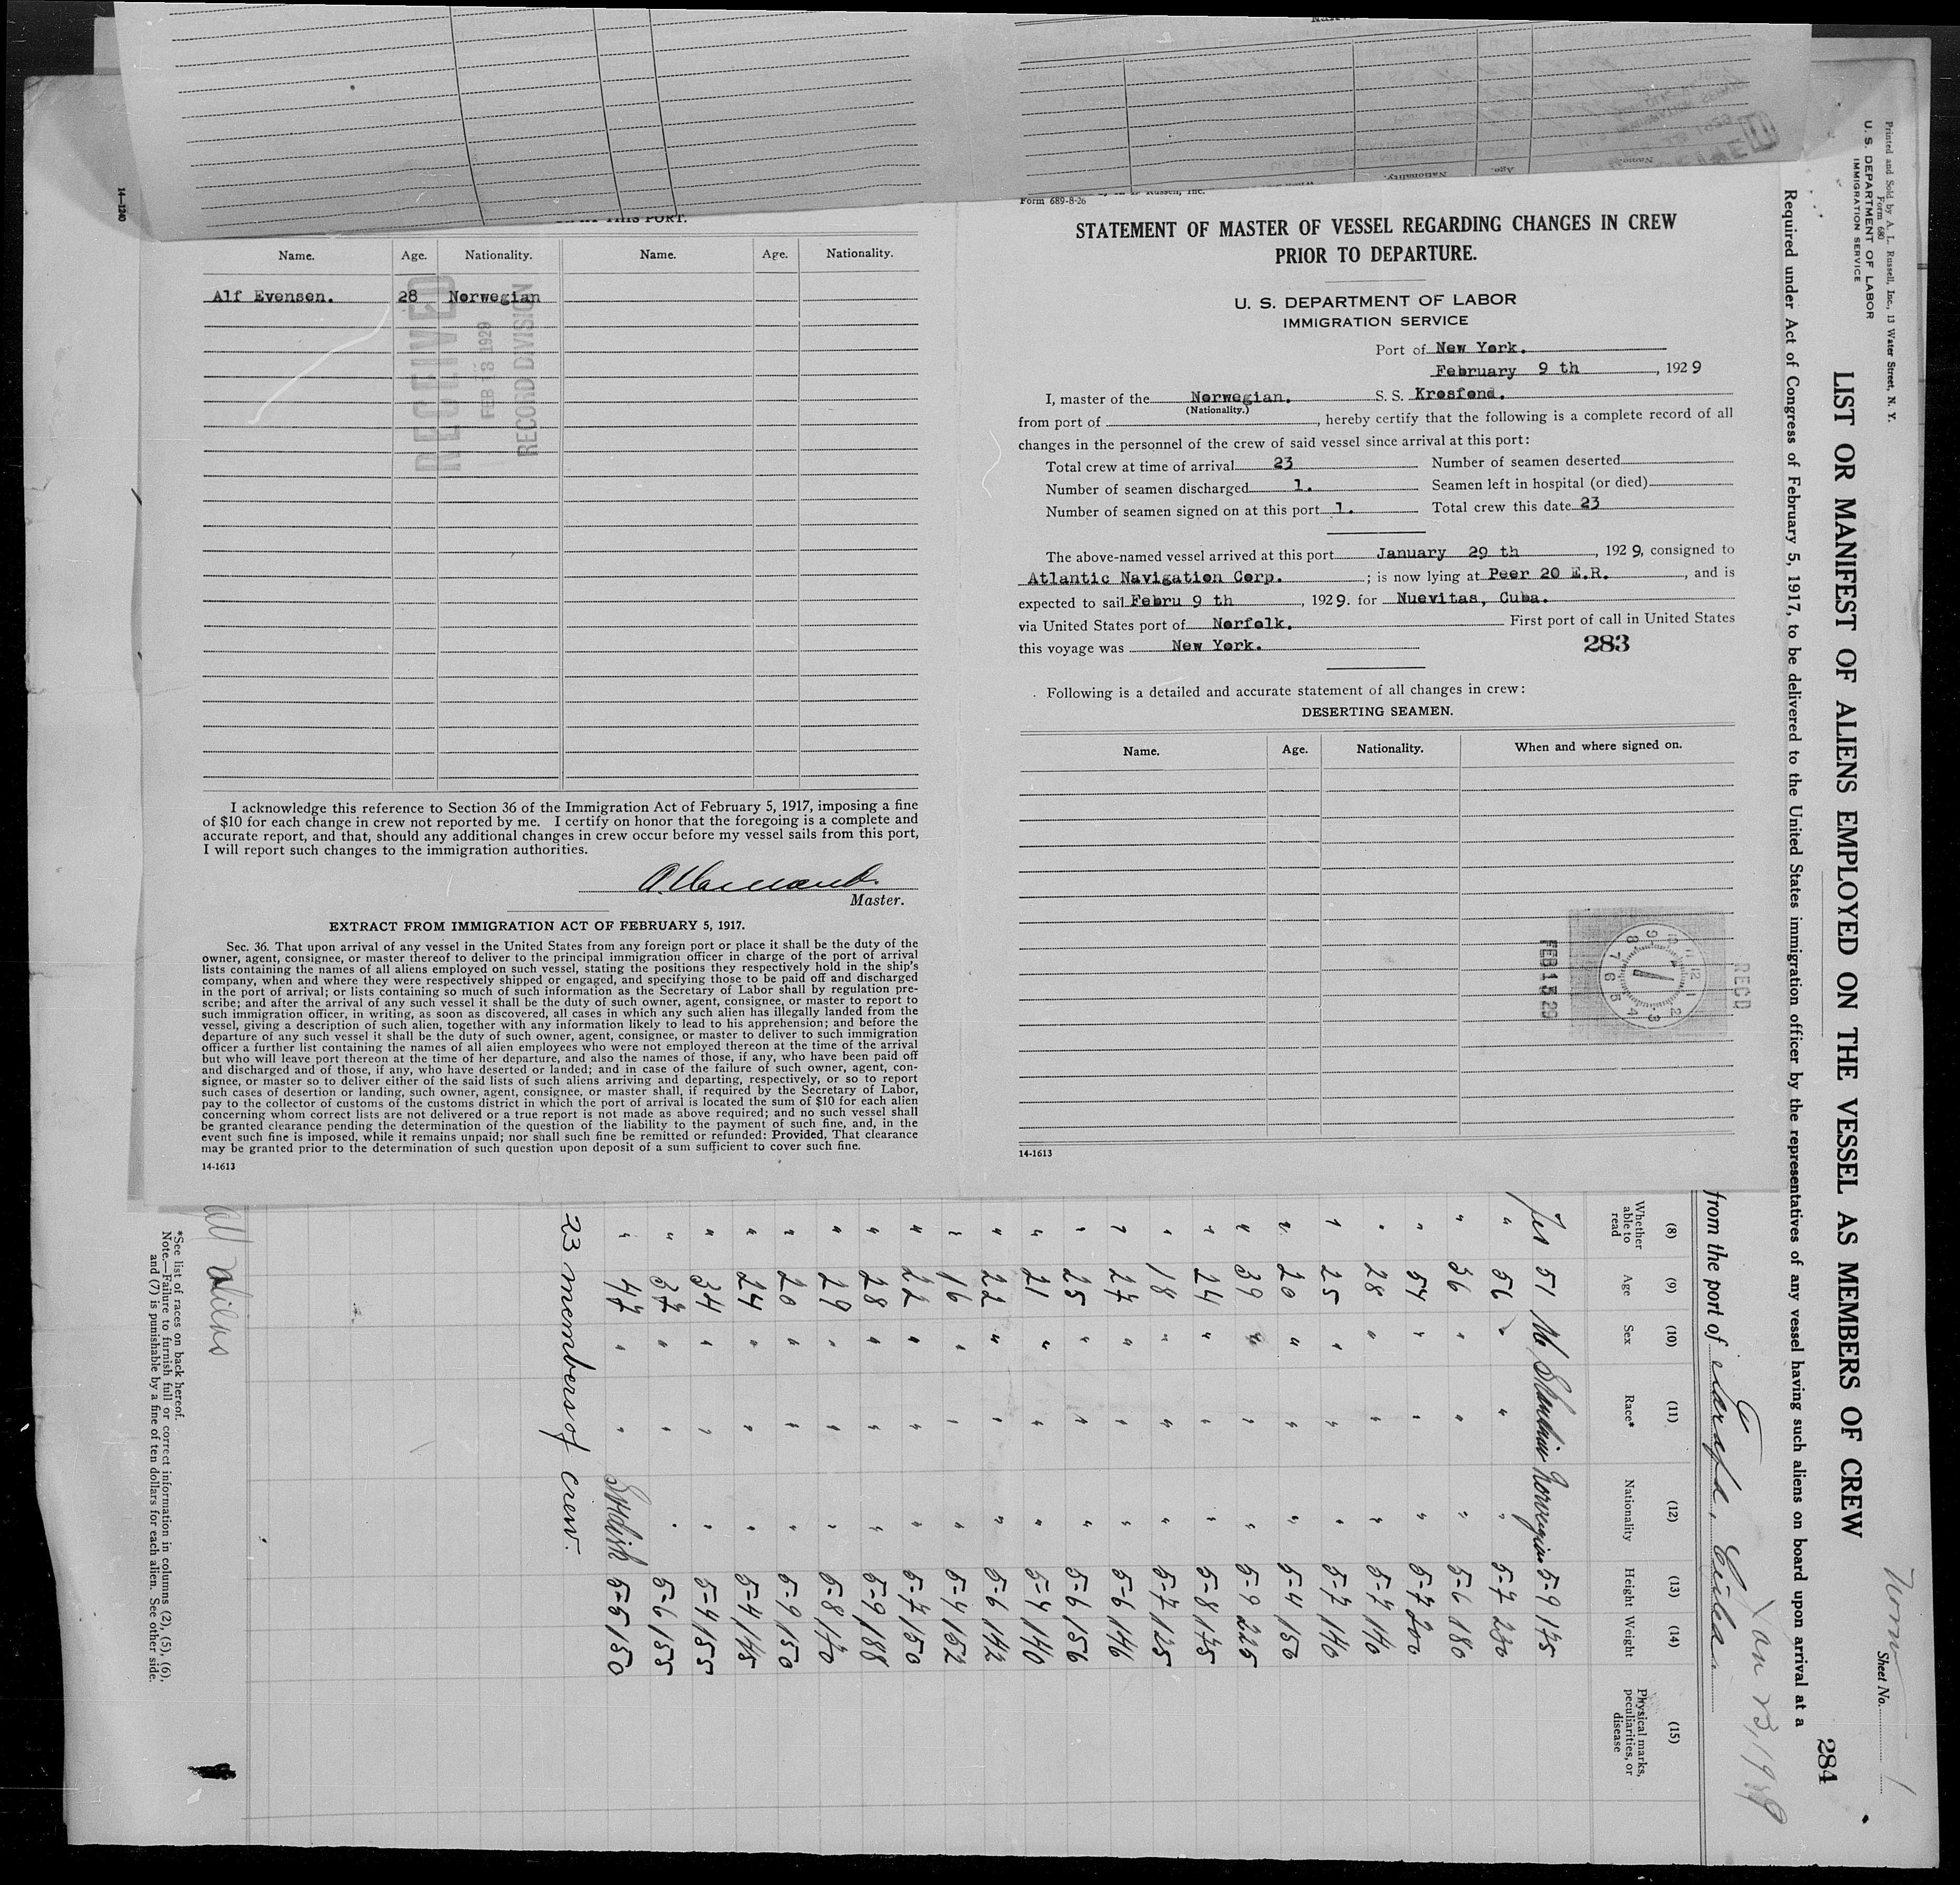 THIS PORT.
Name. Age. Nationality. Name. Age. Nationality.
Alf Evensen. 28 Norwegian
RECEIVED
FEB 13 1929
RECORD DIVISION
I acknowledge this reference to Section 36 of the Immigration Act of February 5, 1917, imposing a fine
of $10 for each change in crew not reported by me. I certify on honor that the foregoing is a complete and
accurate report, and that, should any additional changes in crew occur before my vessel sails from this port,
I will report such changes to the immigration authorities.
Master.
EXTRACT FROM IMMIGRATION ACT OF FEBRUARY 5, 1917.
Sec. 36. That upon arrival of any vessel in the United States from any foreign port or place it shall be the duty of the
owner, agent, consignee, or master thereof to deliver to the principal immigration officer in charge of the port of arrival
lists containing the names of all aliens employed on such vessel, stating the positions they respectively hold in the ship's
company, when and where they were respectively shipped or engaged, and specifying those to be paid off and discharged
in the port of arrival; or lists containing so much of such information as the Secretary of Labor shall by regulation pre-
scribe; and after the arrival of any such vessel it shall be the duty of such owner, agent, consignee, or master to report to
such immigration officer, in writing, as soon as discovered, all cases in which any such alien has illegally landed from the
vessel, giving a description of such alien, together with any information likely to lead to his apprehension; and before the
departure of any such vessel it shall be the duty of such owner, agent, consignee, or master to deliver to such immigration
officer a further list containing the names of all alien employees who were not employed thereon at the time of the arrival
but who will leave port thereon at the time of her departure, and also the names of those, if any, who have been paid off
and discharged and of those, if any, who have deserted or landed; and in case of the failure of such owner, agent, con-
signee, or master so to deliver either of the said lists of such aliens arriving and departing, respectively, or so to report
such cases of desertion or landing, such owner, agent, consignee, or master shall, if required by the Secretary of Labor,
pay to the collector of customs of the customs district in which the port of arrival is located the sum of $10 for each alien
concerning whom correct lists are not delivered or a true report is not made as above required; and no such vessel shall
be granted clearance pending the determination of the question of the liability to the payment of such fine, and, in the
event such fine is imposed, while it remains unpaid; nor shall such fine be remitted or refunded: Provided, That clearance
may be granted prior to the determination of such question upon deposit of a sum sufficient to cover such fine.
14-1613
14-1240
Form 689-8-26
STATEMENT OF MASTER OF VESSEL REGARDING CHANGES IN CREW
PRIOR TO DEPARTURE.
U. S. DEPARTMENT OF LABOR
IMMIGRATION SERVICE
Port of New York.
February 9 th, 1929
I, master of the Norwegian. S. S. Krosfond.
(Nationality.)
from port of , hereby certify that the following is a complete record of all
changes in the personnel of the crew of said vessel since arrival at this port:
Total crew at time of arrival 23 Number of seamen deserted
Number of seamen discharged 1. Seamen left in hospital (or died)
Number of seamen signed on at this port 1. Total crew this date 23
The above-named vessel arrived at this port January 29 th, 1929, consigned to
Atlantic Navigation Corp. ; is now lying at Peer 20 E.R., and is
expected to sail Febru 9 th, 1929. for Nuevitas, Cuba.
via United States port of Norfolk. First port of call in United States
this voyage was New York. 283
Following is a detailed and accurate statement of all changes in crew:
DESERTING SEAMEN.
Name. Age. Nationality. When and where signed on.
RECD
FEB 13 29
14-1613
Printed and Sold by A. L. Russell, Inc., 13 Water Street, N. Y.
Form 680
U. S. DEPARTMENT OF LABOR
IMMIGRATION SERVICE
Sheet No. 1
LIST OR MANIFEST OF ALIENS EMPLOYED ON THE VESSEL AS MEMBERS OF CREW
284
Required under Act of Congress of February 5, 1917, to be delivered to the United States immigration officer by the representatives of any vessel having such aliens on board upon arrival at a
from the port of
(8) (9) (10) (11) (12) (13) (14) (15)
Whether able to read Age Sex Race* Nationality Height Weight Physical marks, peculiarities, or disease
Yes 51 M Norwegian 5-9 175
" 56 " " " 5-7 230
" 36 " " " 5-6 180
" 54 " " " 5-7 200
" 28 " " " 5-7 140
" 25 " " " 5-7 140
" 20 " " " 5-4 150
" 39 " " " 5-9 225
" 24 " " " 5-8 175
" 18 " " " 5-7 125
" 27 " " " 5-6 146
" 25 " " " 5-6 156
" 21 " " " 5-4 140
" 22 " " " 5-6 142
" 16 " " " 5-4 152
" 22 " " " 5-7 150
" 28 " " " 5-9 188
" 29 " " " 5-8 170
" 20 " " " 5-9 150
" 24 " " " 5-4 145
" 34 " " " 5-4 155
" 37 " " " 5-6 155
" 47 " " 5-5 150
23 members of crew.
all aliens
*See list of races on back hereof.
Note.—Failure to furnish full or correct information in columns (2), (5), (6),
and (7) is punishable by a fine of ten dollars for each alien. See other side.